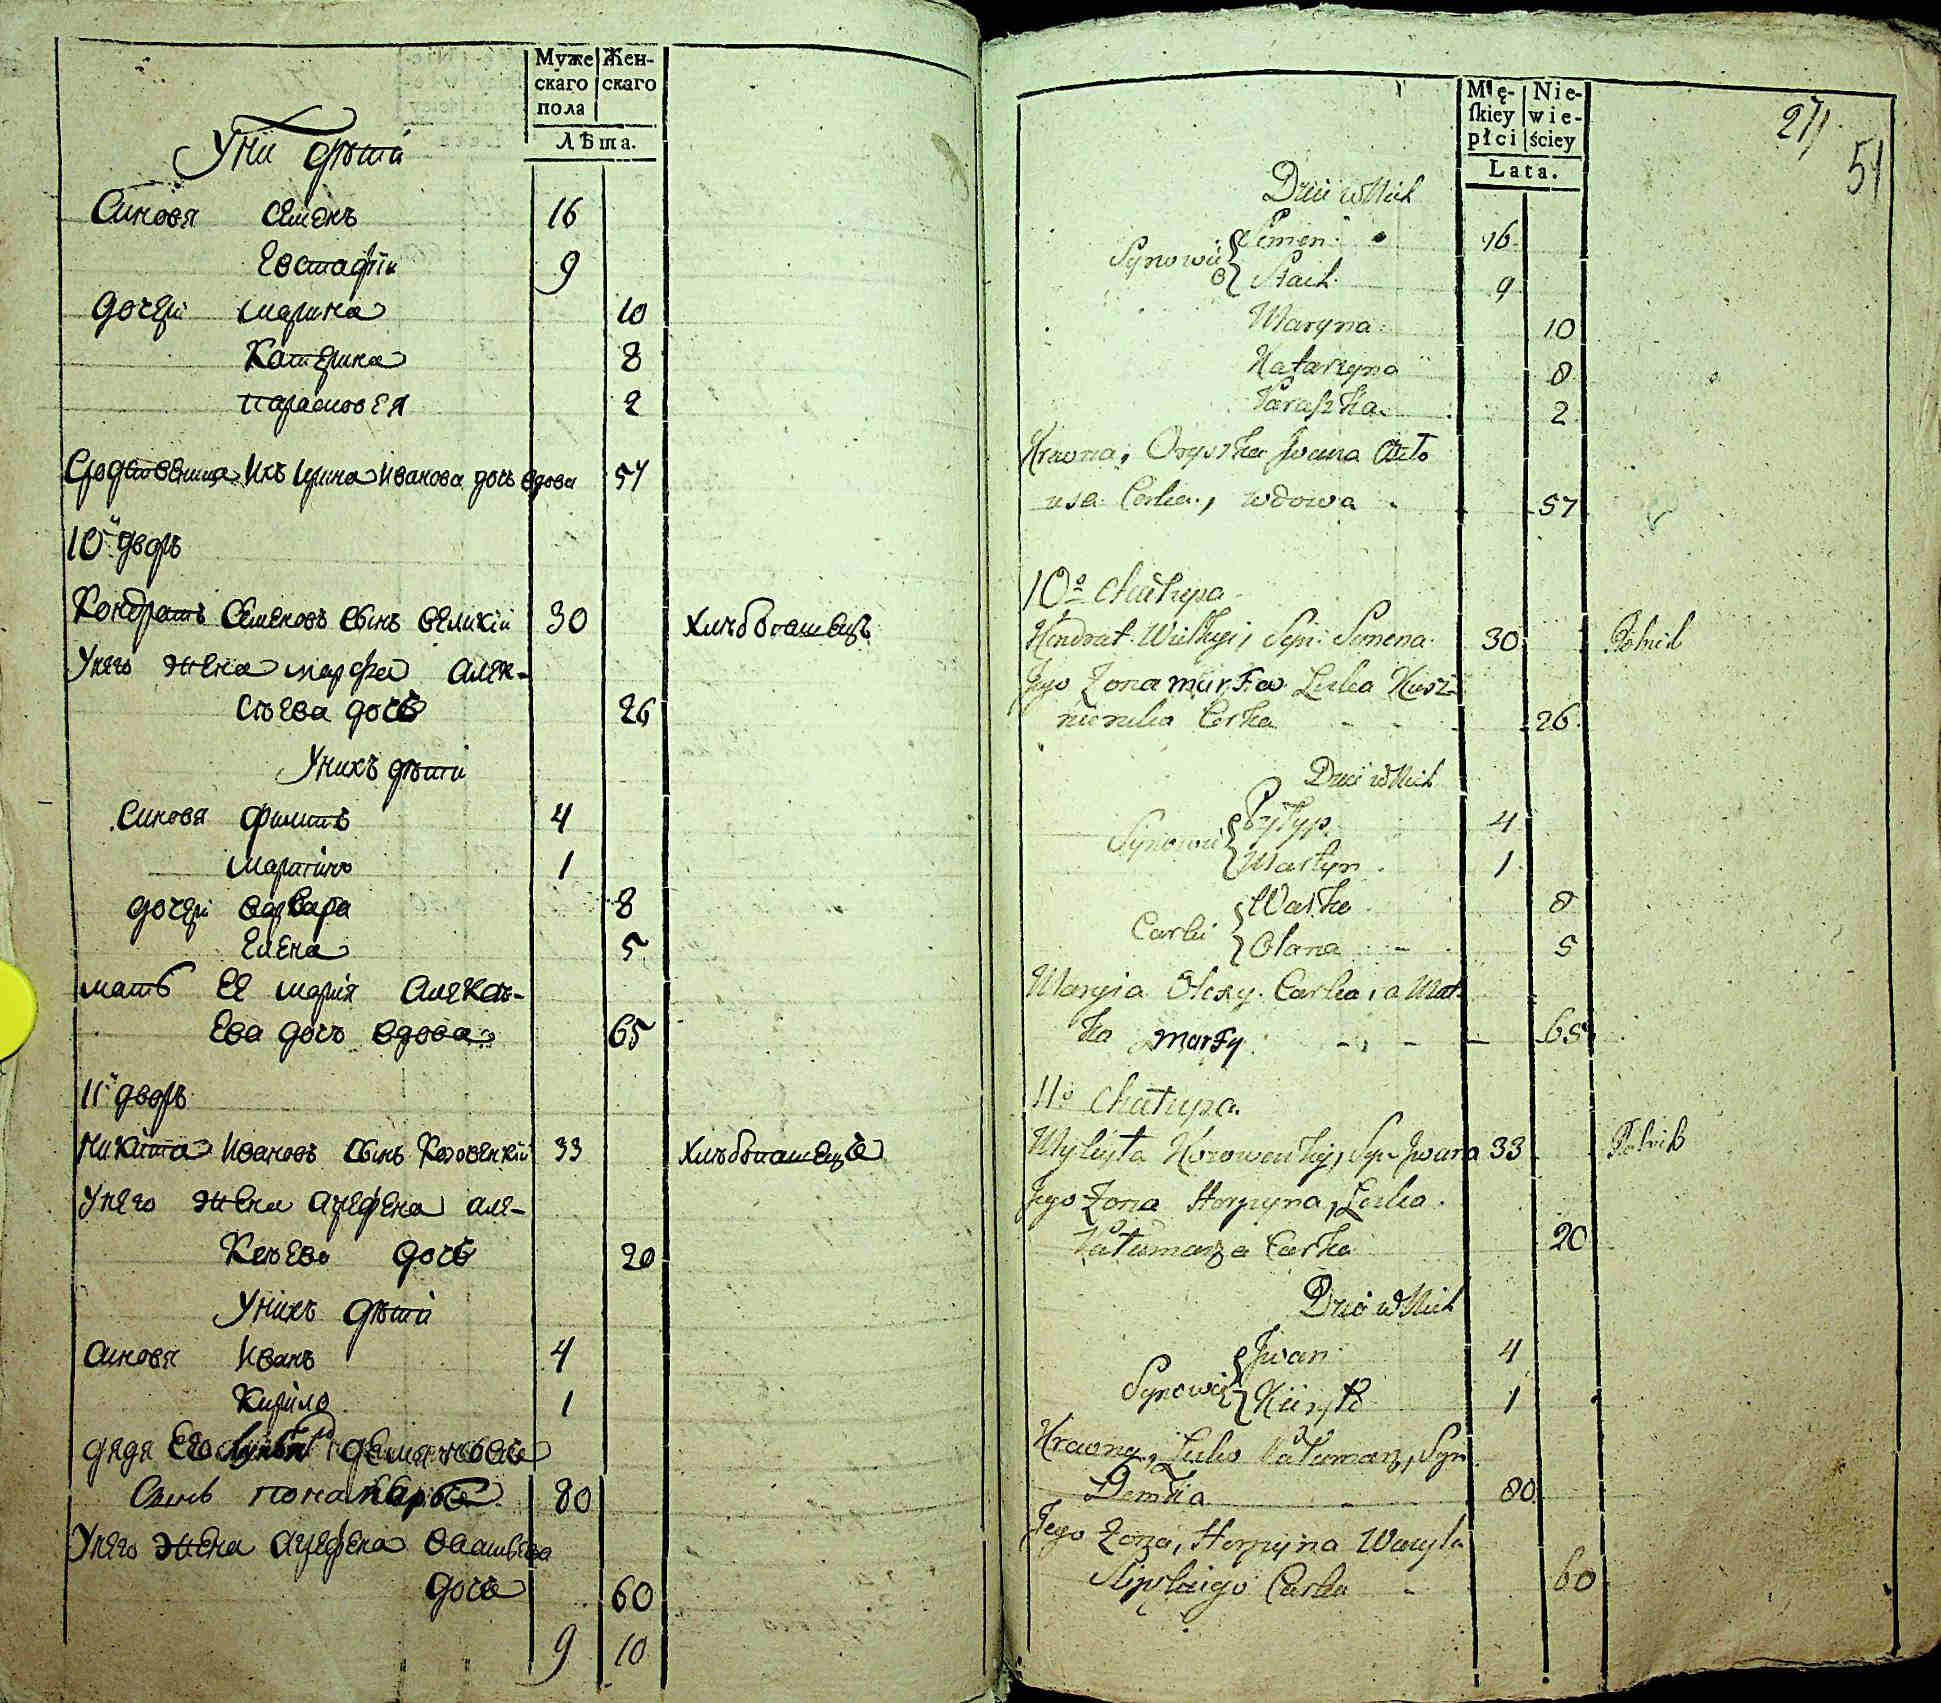 Муже
скаго
пола
Жен-
скаго
Лѣта.
Унй дѣти
Синовя Семенъ 16
Евстафїи 9
дочери марина 10
Катерина 8
парасковея 2
Сродственица Ихъ Ирина Иванова дочь вдова 57
10й дворъ
Кондратъ Семеновъ сынъ великїи 30 хлѣбопашецъ
Унего жена марфа алек-
сѣева дочь 26
Унихъ дѣти
Синовя филипъ 4
мартинъ 1
дочери варвара 8
Елена 5
мать Ее марїя алексѣ-
Ева дочь вдова 65
11й дворъ
Никита Ивановъ сынъ Козовенкїи 33 хлѣбопашецъ
Унего жена агрефена але-
Ксѣева дочь 20
Унихъ дѣти
Синовя Иванъ 4
Кирило 1
дядя Его
Синъ 80
Унего жена агрефена
дочь 60
9 10
Męſkiey
płci
Niewieściey
Lata.
271
51
Dzieci w Nich
Synowie Semen 16
Stach 9
Maryna 10
Katarzyna 8
Paraszka 2
Krewna, Oryszka Jwana
Corka, wdowa 57
10o Chałupa
Kondrat Wielkyi, Syn Semena 30 Rolnik
Jego Zona marFa Leska Kusz-
nierenka Corka 26
Dzieci w Nich
Synowie Pyłyp 4
Martyn 1
Corki Warka 8
Olana 5
Maryia Olexy Corka, a Mat-
ka marFy 65
11o Chałupa
Mykyta Kozowenkij, Syn Jwana 33 Rolnik
Jego Zona Horpyna, Leska
Corka 20
Dzieci w Nich
Synowie Jwan 4
Kiryło 1
Krewny, Syn
Demka 80
Jego Zona, Horpyna Wasyla
Corka 60